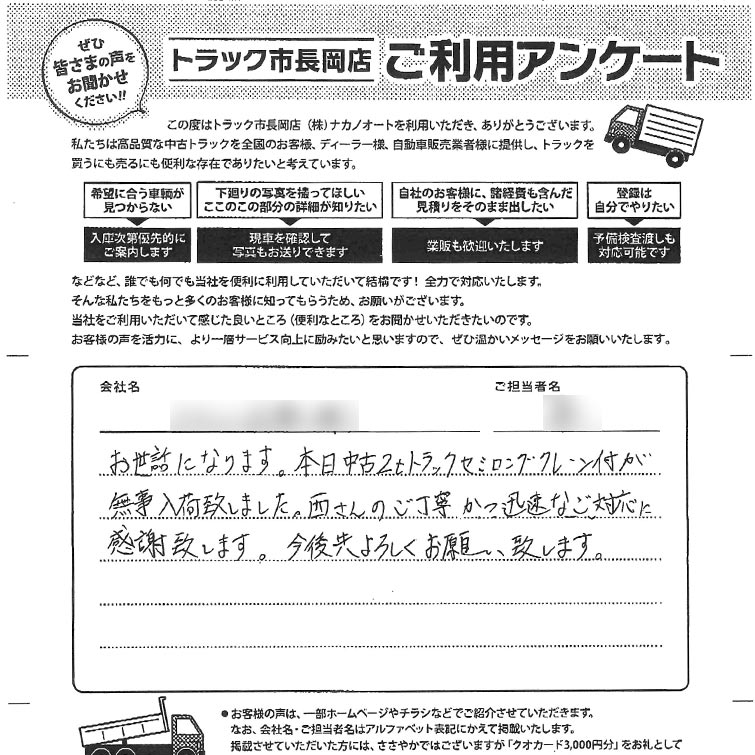 ぜひ
皆さまの声を
お聞かせ
ください!!
トラック市長岡店 ご利用アンケート
この度はトラック市長岡店(株)ナカノオートを利用いただき、ありがとうございます。
私たちは高品質な中古トラックを全国のお客様、ディーラー様、自動車販売業者様に提供し、トラックを
買うにも売るにも便利な存在でありたいと考えています。
希望に合う車輌が
見つからない
入庫次第優先的に
ご案内します
下廻りの写真を撮ってほしい
ここのこの部分の詳細が知りたい
現車を確認して
写真もお送りできます
自社のお客様に、諸経費も含んだ
見積りをそのまま出したい
業販も歓迎いたします
登録は
自分でやりたい
予備検査渡しも
対応可能です
などなど、誰でも何でも当社を便利に利用していただいて結構です!全力で対応いたします。
そんな私たちをもっと多くのお客様に知ってもらうため、お願いがございます。
当社をご利用いただいて感じた良いところ(便利なところ)をお聞かせいただきたいのです。
お客様の声を活力に、より一層サービス向上に励みたいと思いますので、ぜひ温かいメッセージをお願いいたします。
会社名 ご担当者名
お世話になります。本日中古2tトラックセミロングクレーン付が
無事入荷致しました。西さんのご丁寧かつ迅速なご対応に
感謝致します。今後共よろしくお願い致します。
●お客様の声は、一部ホームページやチラシなどでご紹介させていただきます。
なお、会社名・ご担当者名はアルファベット表記にかえて掲載いたします。
掲載させていただいた方には、ささやかではございますが「クオカード3,000円分」をお礼として